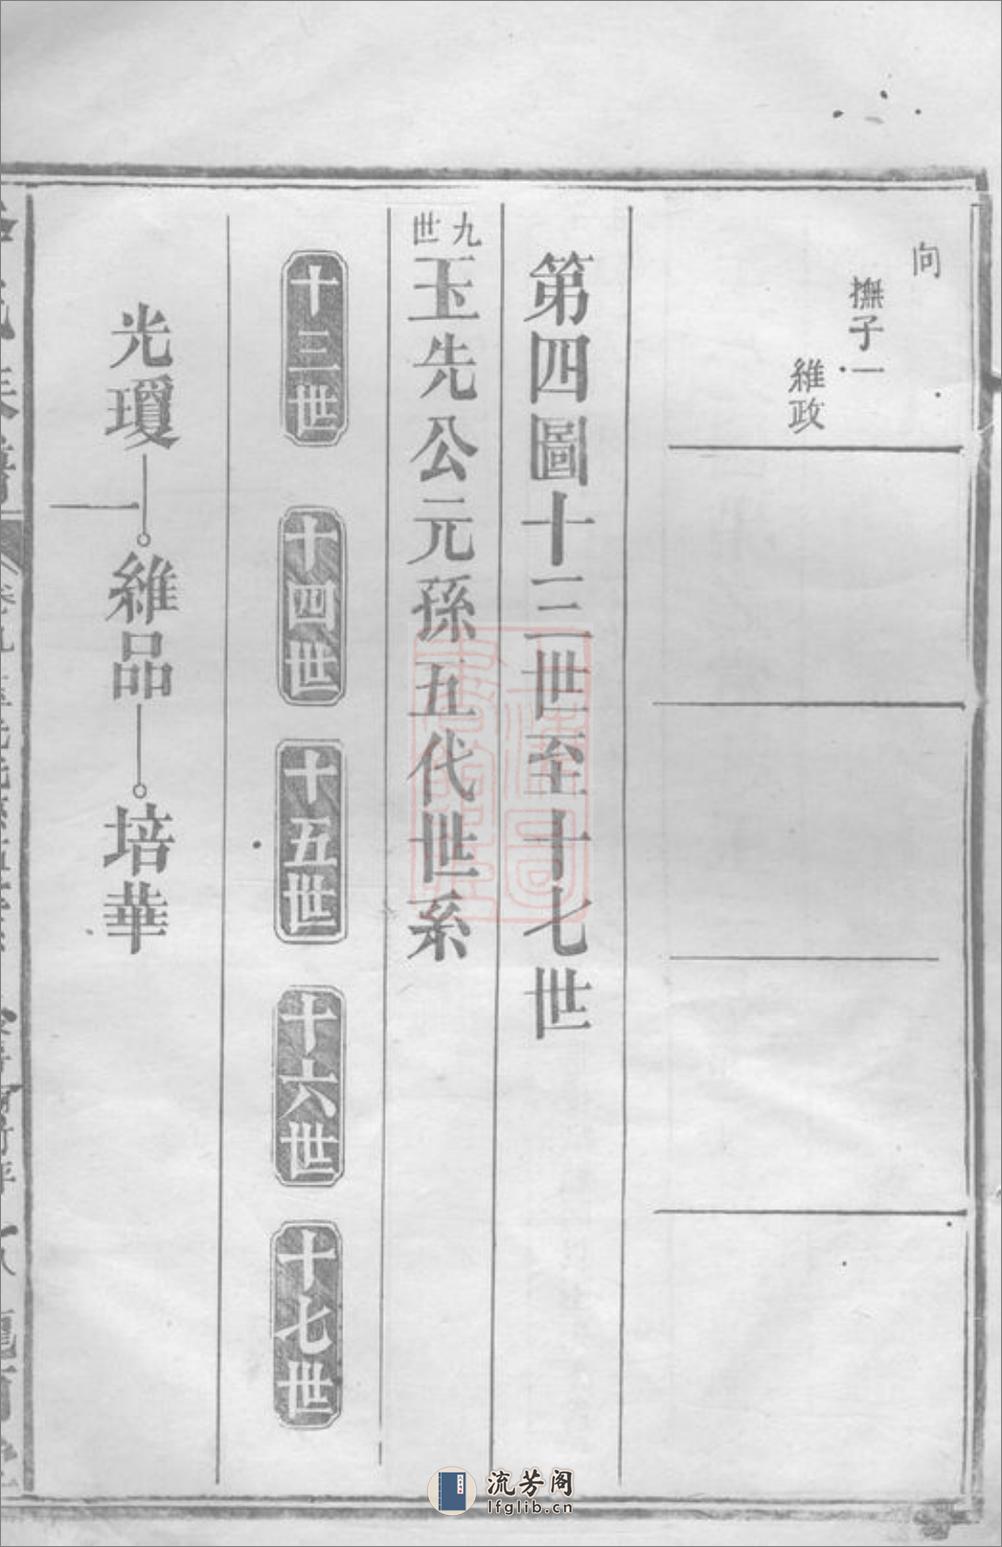 向
撫子一
維政
第四圖十三世至十七世
九世玉先公元孫五代世系
十三世
十四世
十五世
十六世
十七世
光瓊
維品
培華
流芳阁
lfglib.cn